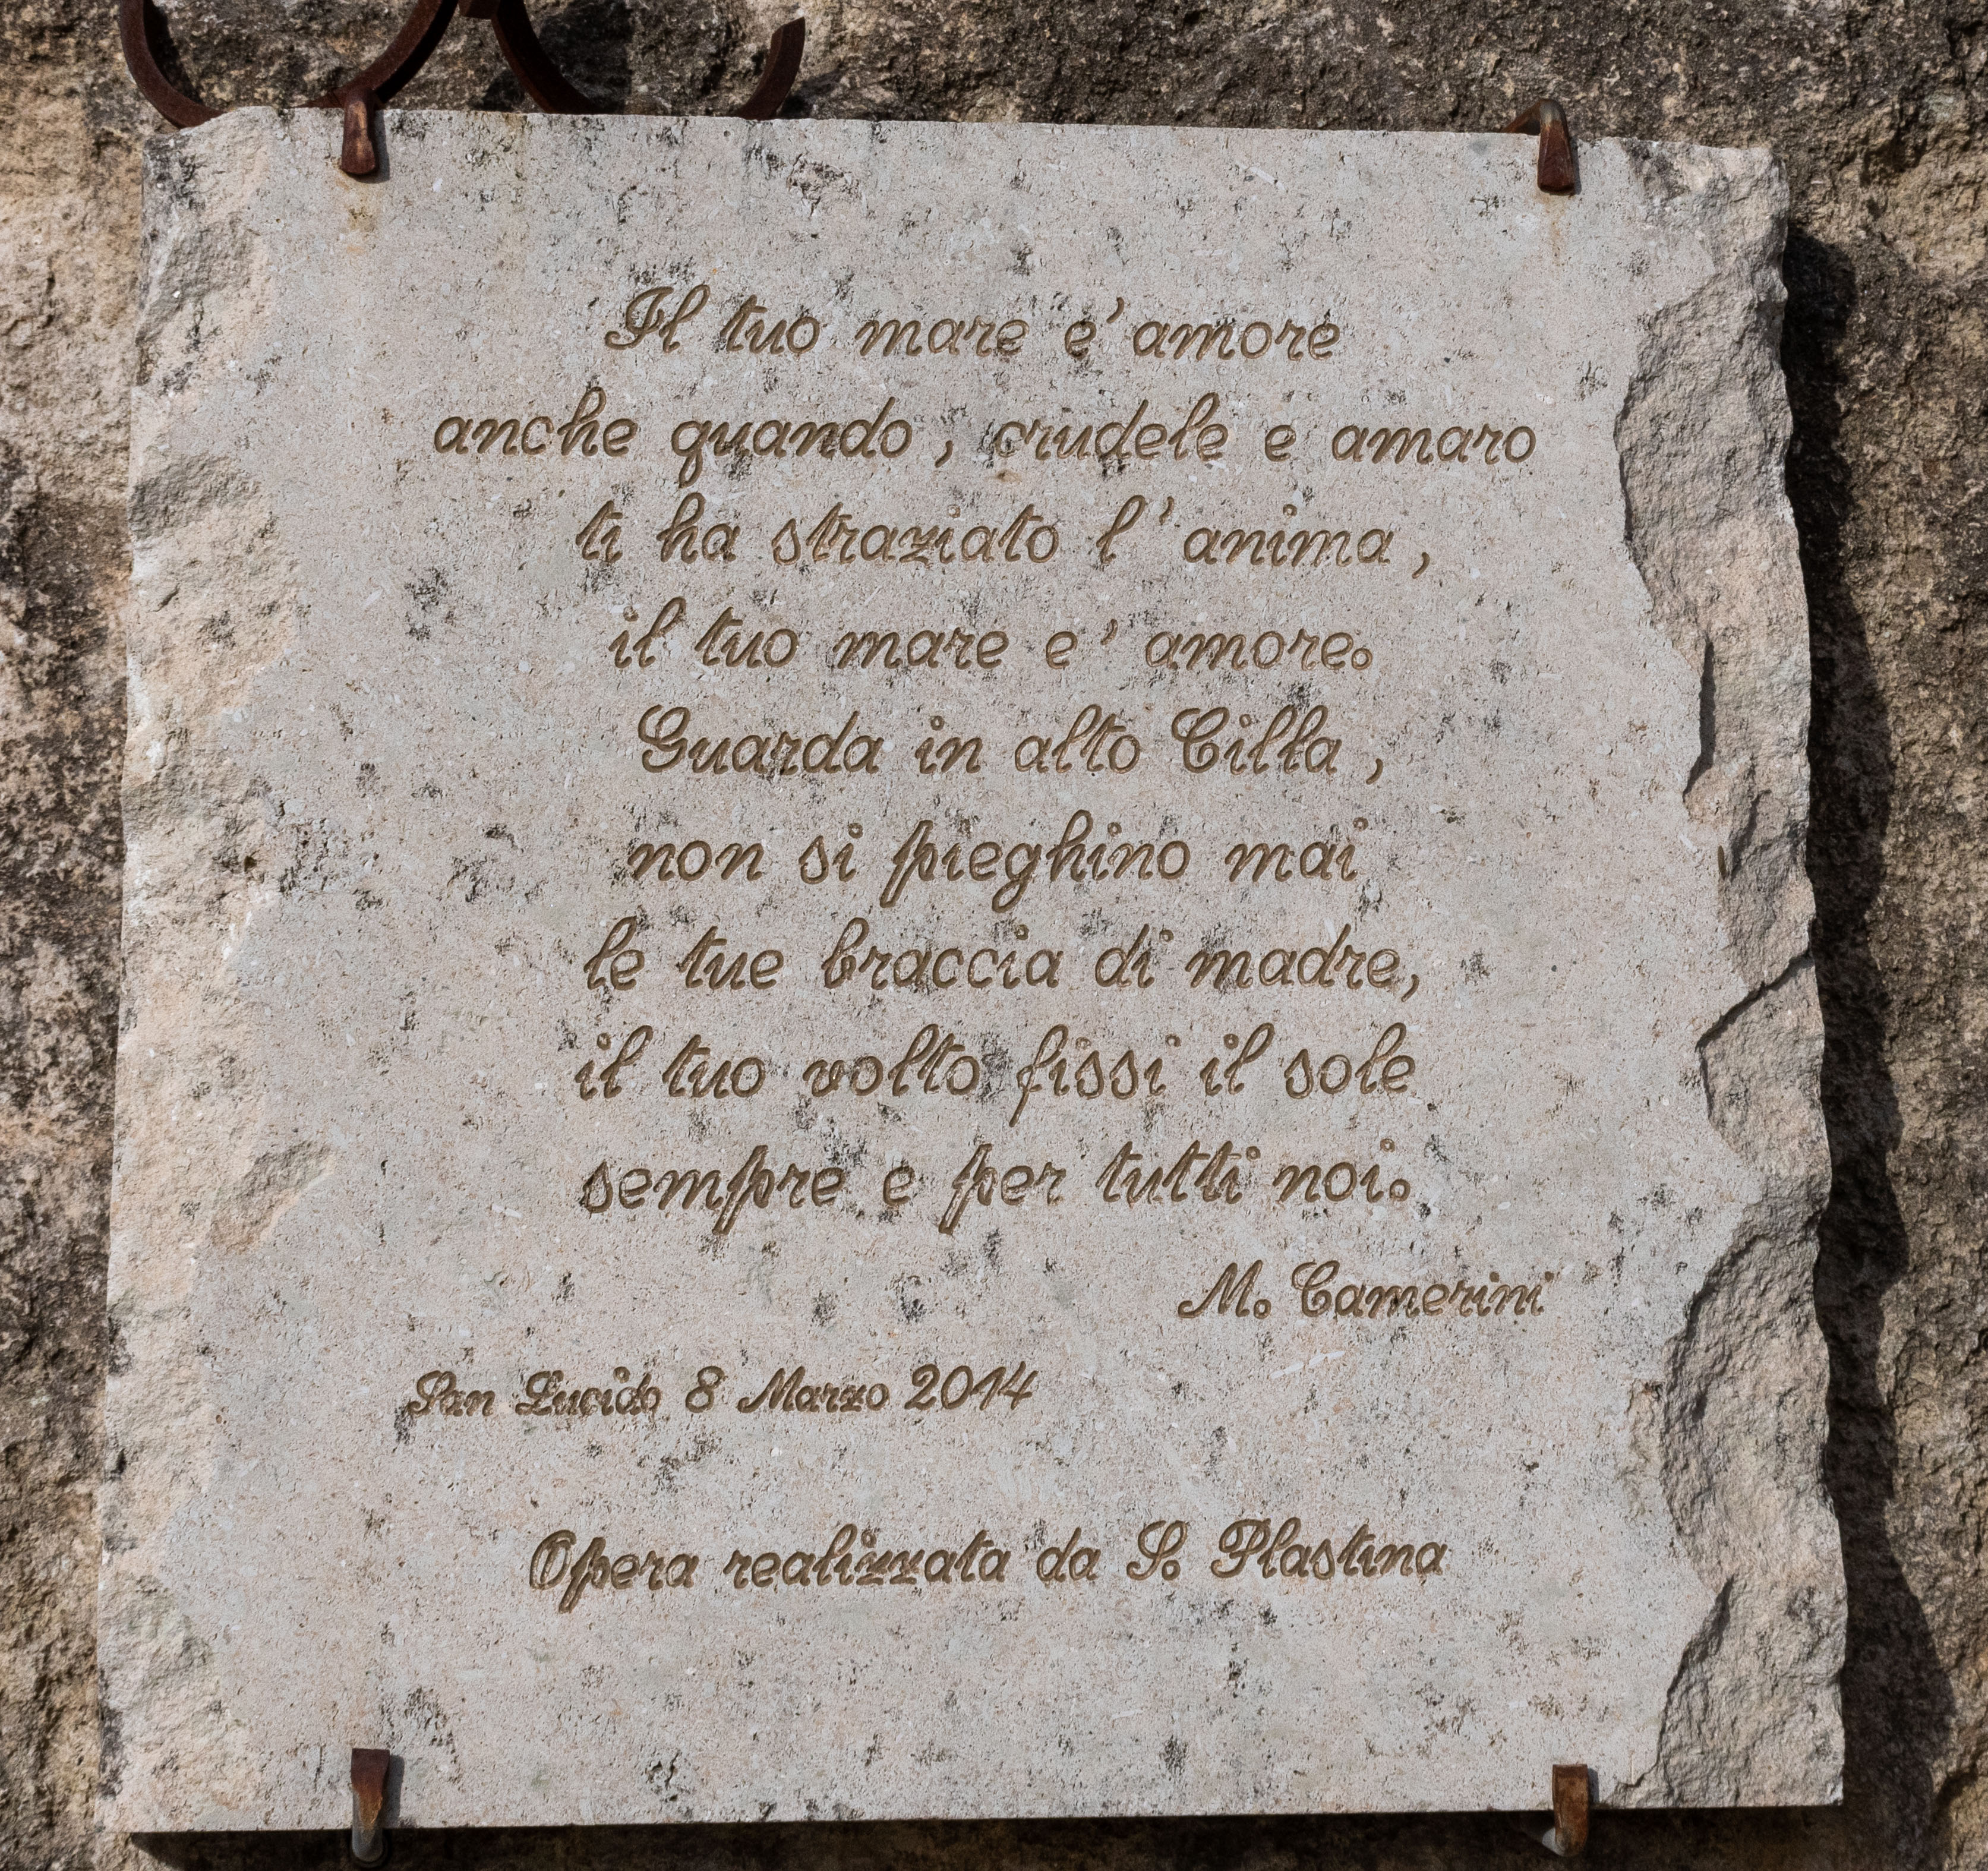 Il tuo mare e' amore
anche quando, crudele e amaro
ti ha straziato l'anima,
il tuo mare e' amore.
Guarda in alto Cilla,
non si pieghino mai
le tue braccia di madre,
il tuo volto fissi il sole
sempre e per tutti noi.
M. Camerini
San Lucido 8 Marzo 2014
Opera realizzata da S. Plastina